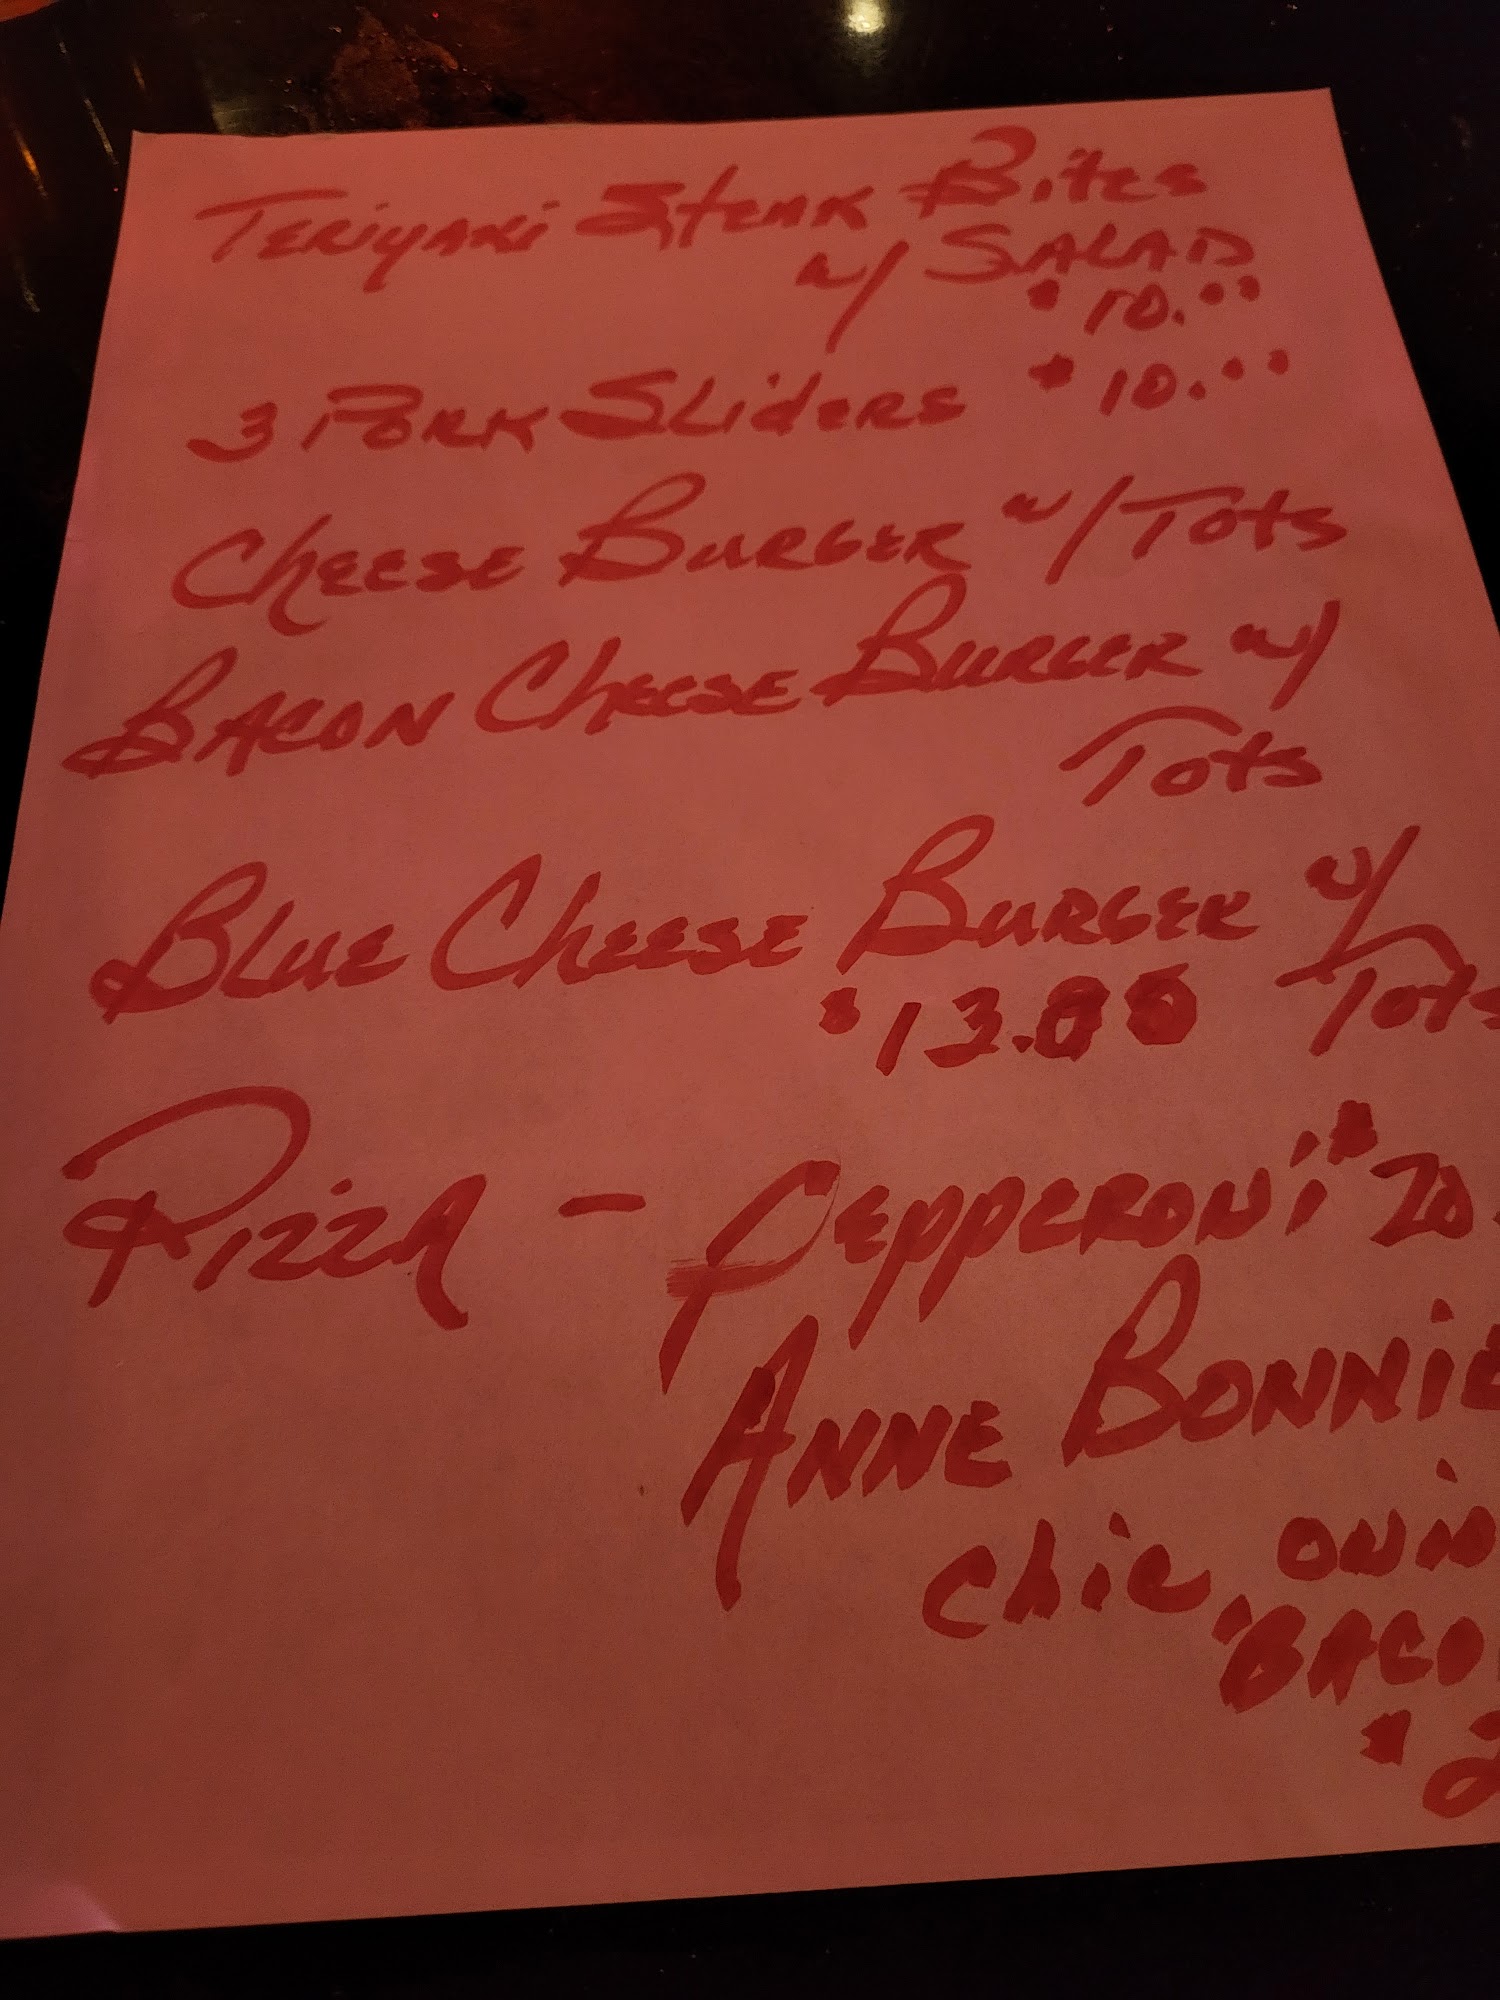 Teriyaki Steak Bites
w/ Salad
$10.00
3 Pork Sliders $10.00
Cheese Burger w/ Tots
Bacon Cheese Burger w/
Tots
Blue Cheese Burger w/
$13.00 Tots
Pizza - Pepperoni $20.
Anne Bonnie
Chic, onin
Baco
$2